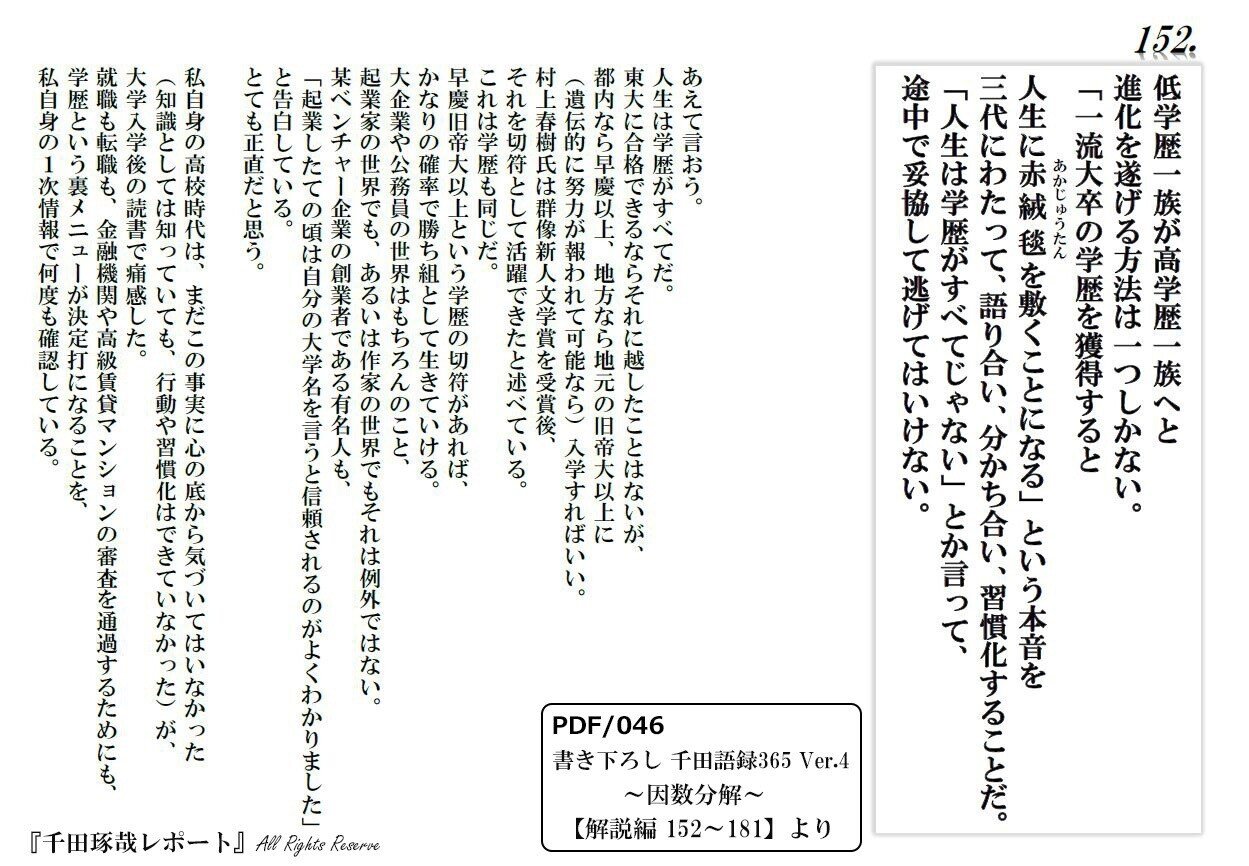 152.
低学歴一族が高学歴一族へと
進化を遂げる方法は一つしかない。
「一流大卒の学歴を獲得すると
人生に赤絨毯を敷くことになる」という本音を
あかじゅうたん
三代にわたって、語り合い、分かち合い、習慣化することだ。
「人生は学歴がすべてじゃない」とか言って、
途中で妥協して逃げてはいけない。
あえて言おう。
人生は学歴がすべてだ。
東大に合格できるならそれに越したことはないが、
都内なら早慶以上、地方なら地元の旧帝大以上に
（遺伝的に努力が報われて可能なら）入学すればいい。
村上春樹氏は群像新人文学賞を受賞後、
それを切符として活躍できたと述べている。
これは学歴も同じだ。
早慶旧帝大以上という学歴の切符があれば、
かなりの確率で勝ち組として生きていける。
大企業や公務員の世界はもちろんのこと、
起業家の世界でも、あるいは作家の世界でもそれは例外ではない。
某ベンチャー企業の創業者である有名人も、
「起業したての頃は自分の大学名を言うと信頼されるのがよくわかりました」
と告白している。
とても正直だと思う。
私自身の高校時代は、まだこの事実に心の底から気づいてはいなかった
（知識としては知っていても、行動や習慣化はできていなかった）が、
大学入学後の読書で痛感した。
就職も転職も、金融機関や高級賃貸マンションの審査を通過するためにも、
学歴という裏メニューが決定打になることを、
私自身の１次情報で何度も確認している。
PDF/046
書き下ろし 千田語録365 Ver.4
～因数分解～
【解説編 152～181】より
『千田琢哉レポート』 All Rights Reserve